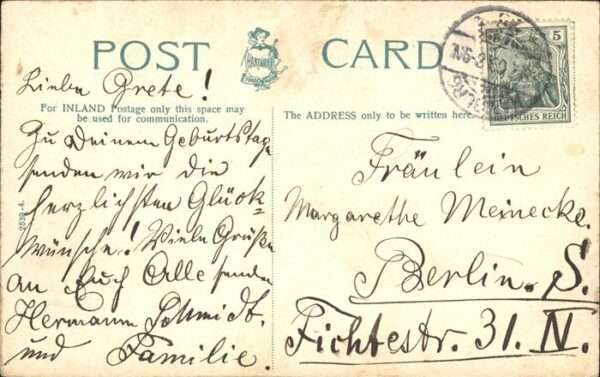 POST CARD
HARTMANN
5
DEUTSCHES REICH
Liebe Grete!
For INLAND Postage only this space may
be used for communication.
The ADDRESS only to be written here.
Zu Deinem Geburtstage
senden wir die
herzlichsten Glück-
wünsche! Viele Grüße
an Euch Alle senden
Hermann Schmidt.
und Familie.
Fräulein
Margarethe Meinecke.
Berlin. S.
Fichtestr. 31. IV.